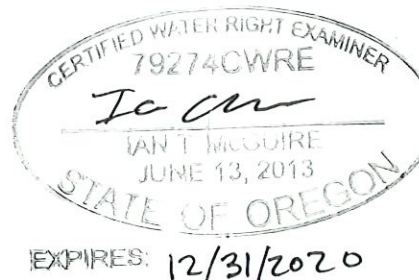 CERTIFIED WATER RIGHT EXAMINER
79274CWRE
IAN T. MCGUIRE
JUNE 13, 2013
STATE OF OREGON
EXPIRES: 12/31/2020